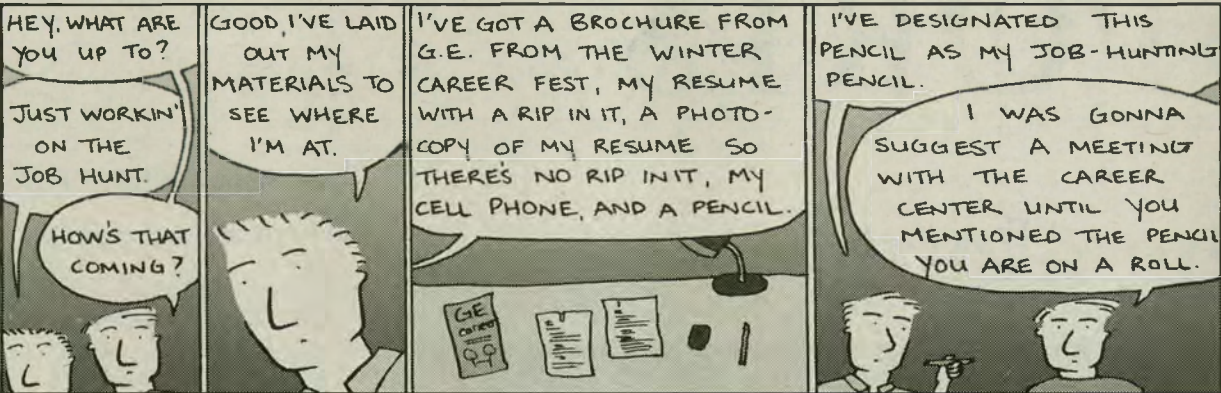 HEY, WHAT ARE
YOU UP TO?
JUST WORKIN'
ON THE
JOB HUNT.
HOW'S THAT
COMING?
GOOD, I'VE LAID
OUT MY
MATERIALS TO
SEE WHERE
I'M AT.
I'VE GOT A BROCHURE FROM
G.E. FROM THE WINTER
CAREER FEST, MY RESUME
WITH A RIP IN IT, A PHOTO-
COPY OF MY RESUME SO
THERE'S NO RIP IN IT, MY
CELL PHONE, AND A PENCIL.
GE
I'VE DESIGNATED THIS
PENCIL AS MY JOB-HUNTING
PENCIL.
I WAS GONNA
SUGGEST A MEETING
WITH THE CAREER
CENTER UNTIL YOU
MENTIONED THE PENCIL
YOU ARE ON A ROLL.